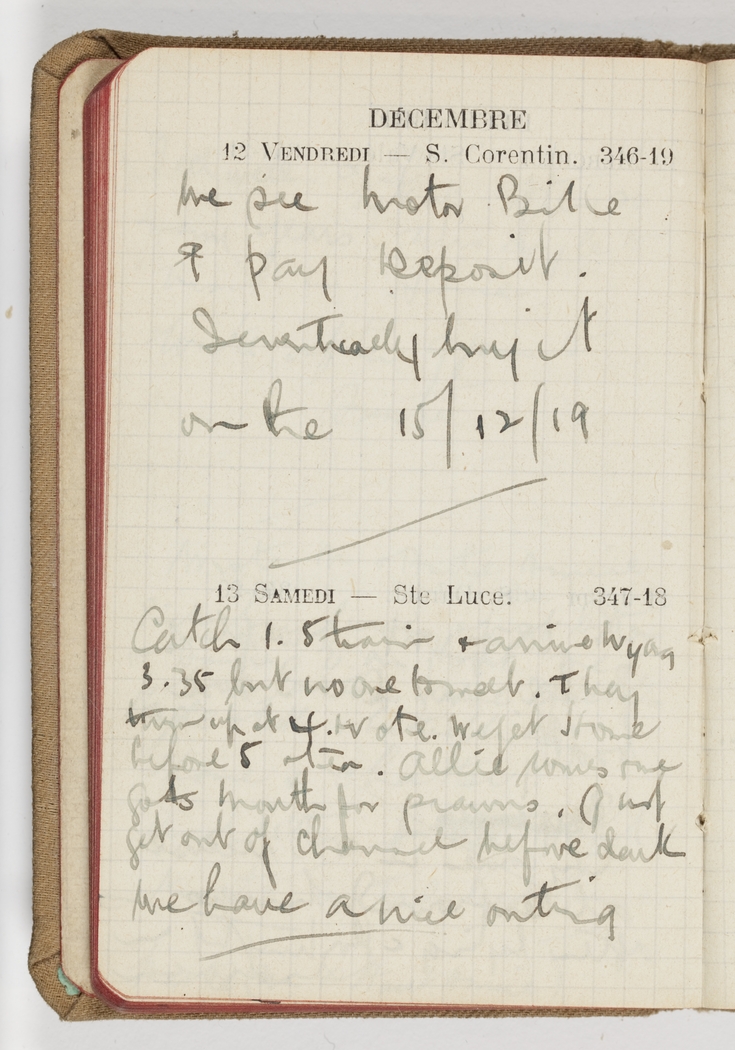 DÉCEMBRE
12 VENDREDI — S. Corentin. 346-19
We see Motor Bike
& pay Deposit.
I eventually buy it
on the 15/12/19
13 SAMEDI — Ste Luce. 347-18
Catch 1.5 train & arrive Wyong
3.35 but no one to meet. They
turn up at 4. We get Home
before 5 Allie comes me
go to mouth for prawns. Just
get out of channel before dark
We have a nice outing